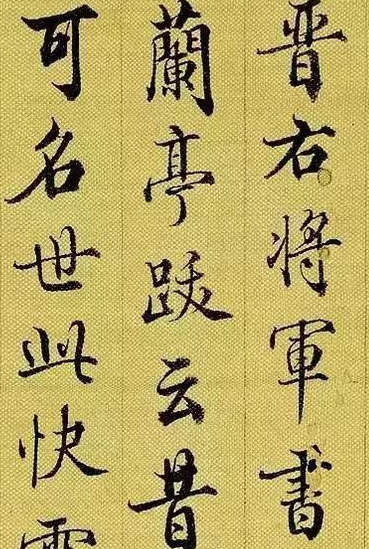 晋右将軍書
蘭亭跋云昔
可名世此快